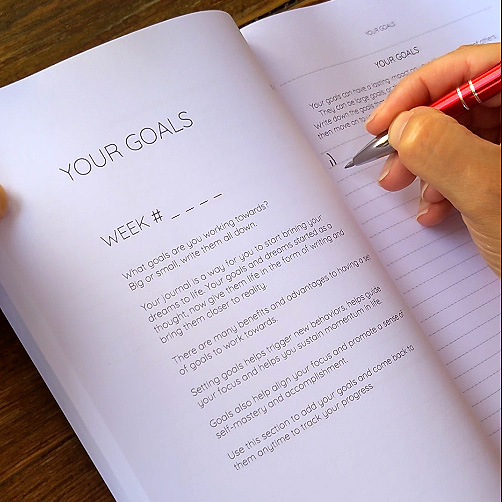 YOUR GOALS
WEEK # _ _ _ _
What goals are you working towards?
Big or small, write them all down.
Your journal is a way for you to start brining your
dreams to life. Your goals and dreams started as a
thought, now give them life in the form of writing and
bring them closer to reality.
There are many benefits and advantages to having a se
of goals to work towards.
Setting goals helps trigger new behaviors, helps guide
your focus and helps you sustain momentum in life.
Goals also help align your focus and promote a sense of
self-mastery and accomplishment.
Use this section to add your goals and come back to
them anytime to track your progress.
YOUR GOALS
YOUR GOALS
Your goals can have a lasting impact
They can be large goals,
Write down the goals
then move on to